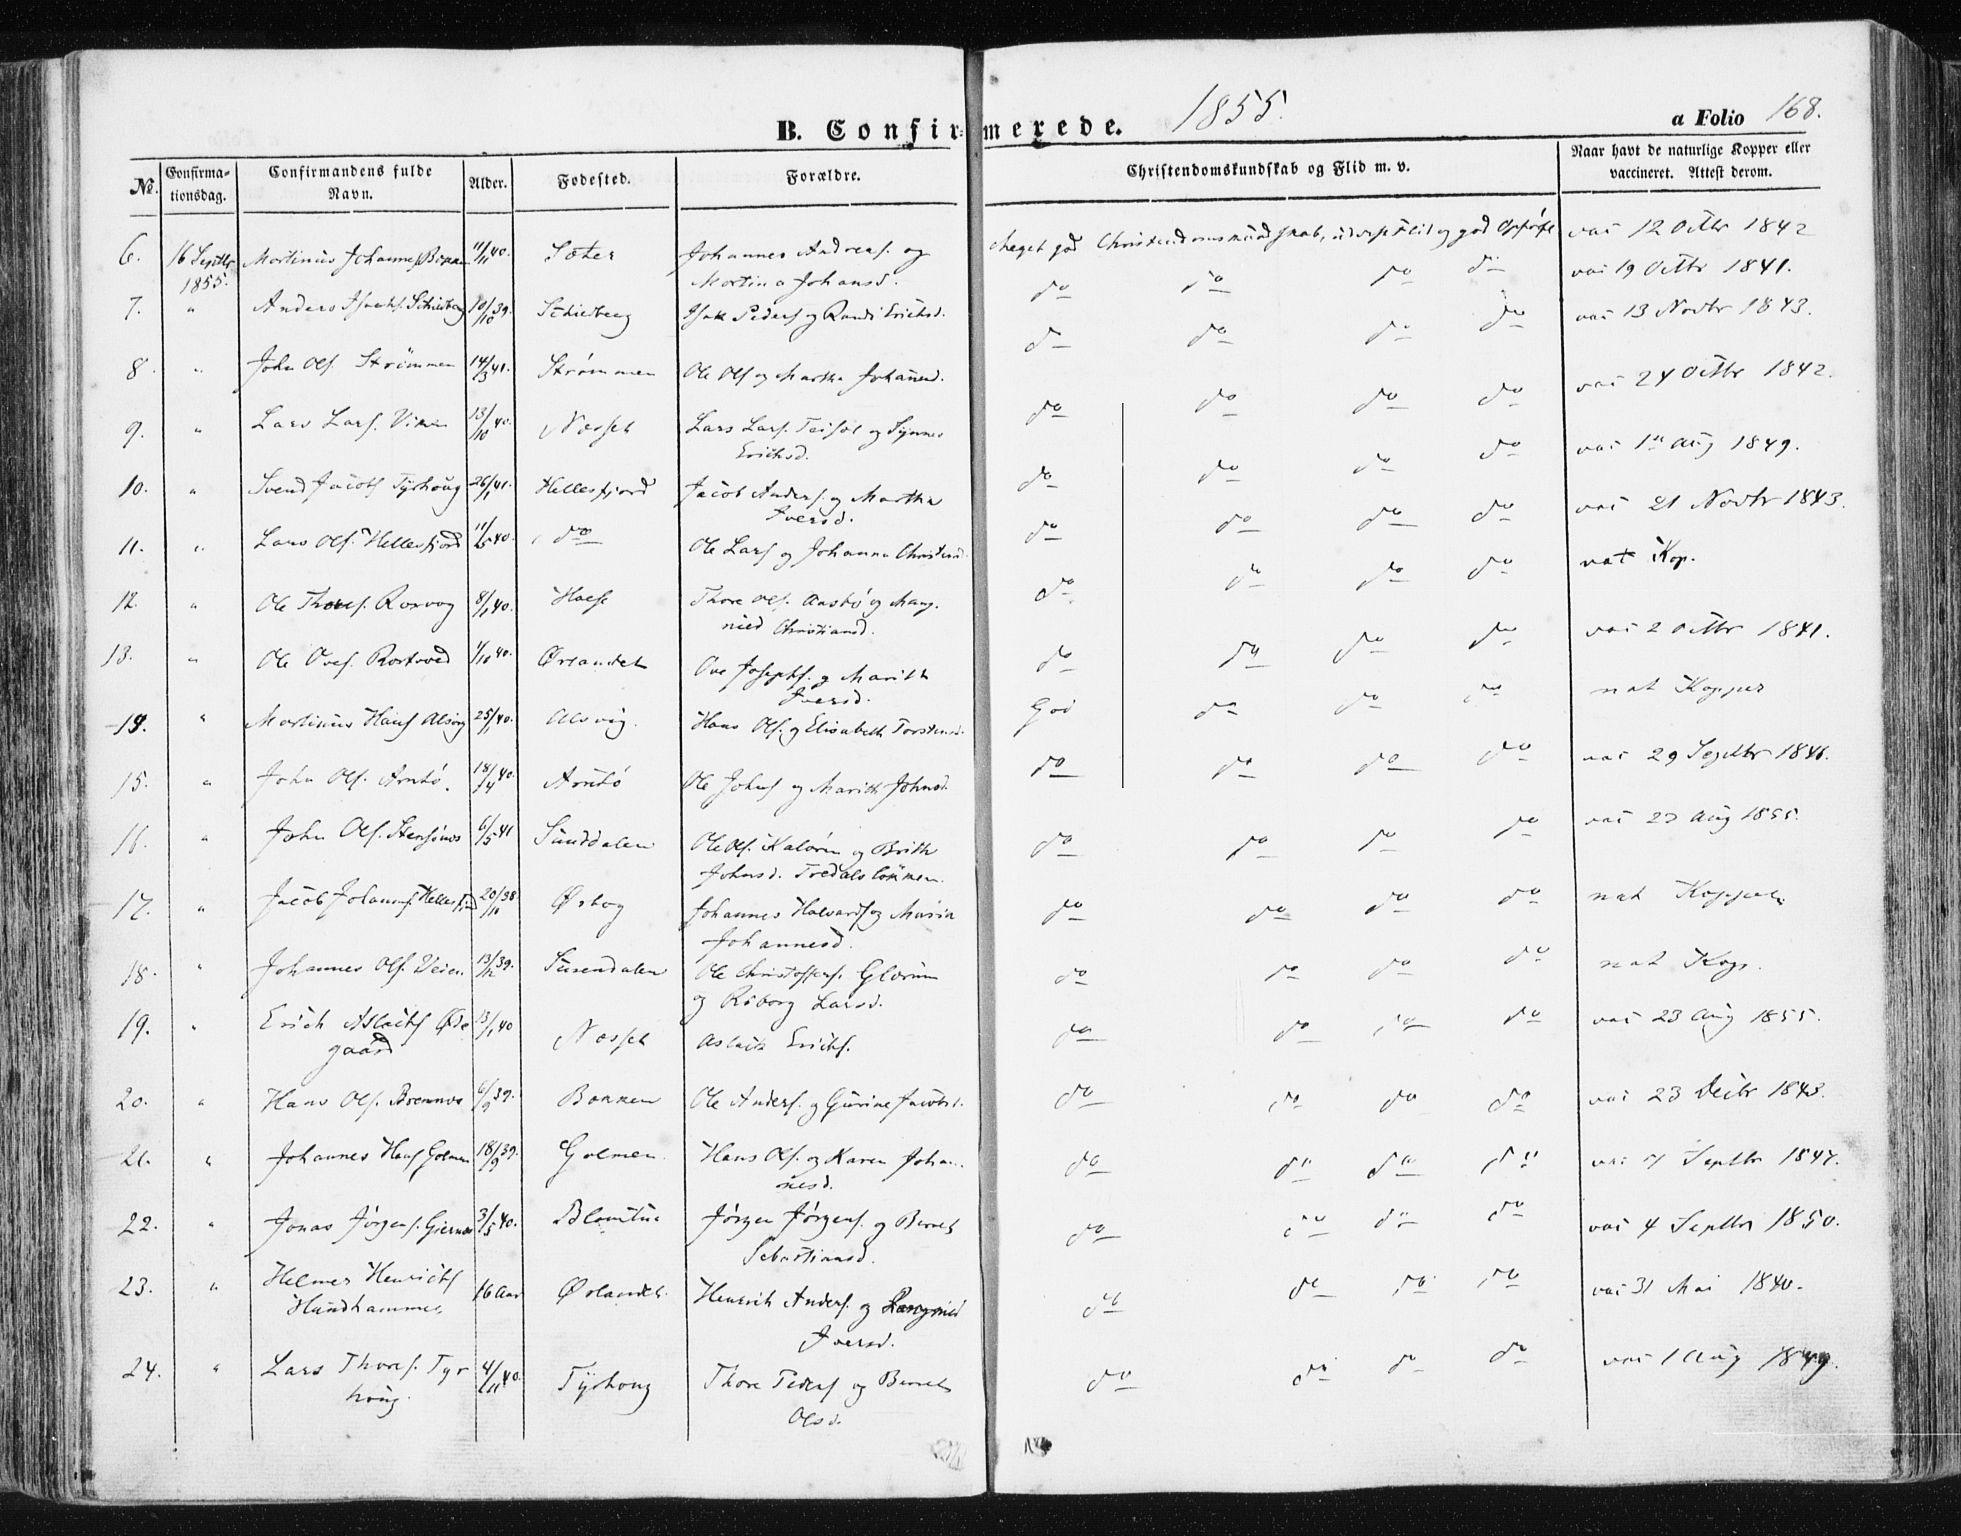 B. Confirmerede. 1855. a Folio 168.
No. Confirmationsdag. Confirmandens fulde Navn. Alder. Fødested. Forældre. Christendomskundskab og Flid m. v. Naar havt de naturlige Kopper eller vaccineret. Attest derom.
6. 16 Septbr 1855. Martinus Johannes 11/11 40. Sæter Johannes Andreas. og Martina Johansd. Meget god Christendomskundskab, Flid og god Opførs vac 12 Octbr 1842
7. " Anders Isachs. Schieberg 10/10 39. Schieberg Isak Peders og Randi Erichsd. do do do do vac 19 Octbr 1841.
8. " John Ols. Strømmen 14/3 41. Strømmen Ole Ols og Martha Johansd. do do do do vac 13 Novbr 1843.
9. " Lars Lars. 13/10 40. Nesset Lars Lars. og Synnev Erichsd. do do do do vac 24 Octbr 1842.
10. " Svend Jacobs Tyrhoug 26/1 41. Hellesfjord Jacob Anders. og Martha Iversd. do do do do vac 1 Aug 1849.
11. " Lars Ols. Hellesfjord 11/5 40. do Ole Lars og Johanna do do do do vac 21 Novbr 1843.
12. " Ole Thores. Rosvog 8/1 40. Halse Thore Ols. og Mangnied Christiansd. do do do do nat Kop.
13. " Ole Oves. 1/10 40. Ørlandet Ove Josephs. og Marith Iversd. do do do do vac 2 Octbr 1841.
14. " Martinus Hans Alsvig 25/1 40. Alsvig. Hans Ols. og Elisabeth Torstensd. God do do do nat Kopper
15. " John Ols. Arntø. 18/4 40. Arntø Ole Johns og Marith Johnsd. do do do do vac 29 Septbr 1846.
16. " John Ols. 6/5 41 Sunddalen Ole Ols. og Brith Johnsd. do do do do vac 23 Aug 1855.
17. " Jacob Johannes. 20/10 38. Johannes Halvards og Maria Johannesd. do do do do nat Kopper.
18. " Johannes Ols. Veien 13/12 39. Surendalen Ole Christoffers. Glærum og Larsd. do do do do nat Kop.
19. " Erich Aslachs Ødegaard 13/1 40 Nesset Aslack Erichs. do do do do vac 23 Aug 1855.
20. " Hans Ols. Brennes 6/9 39. Bakken Ole Anders. og Gurine Jacobsd. do do do do vac 23 Decbr 1843.
21. " Johannes Hans Golmen 18/9 39. Golmen. Hans Ols. og Karen Johannesd. do do do do vac 7 Septbr 1847.
22. " Jonas Jørgens. 3/5 40. Jørgen Jørgens. og Berret Sebastiansd. do do do do vac 4 Septbr 1850.
23. " Helmer Henrichs Hundhammer 16 Aar Ørlandet. Henrich Anders. og Iversd. do do do do vac 31 Mai 1840.
24. " Lars Thores. Tyrhoug. 4/11 40. Tyrhoug Thore Peders og Berret Olsd. do do do do vac 1 Aug 1849.